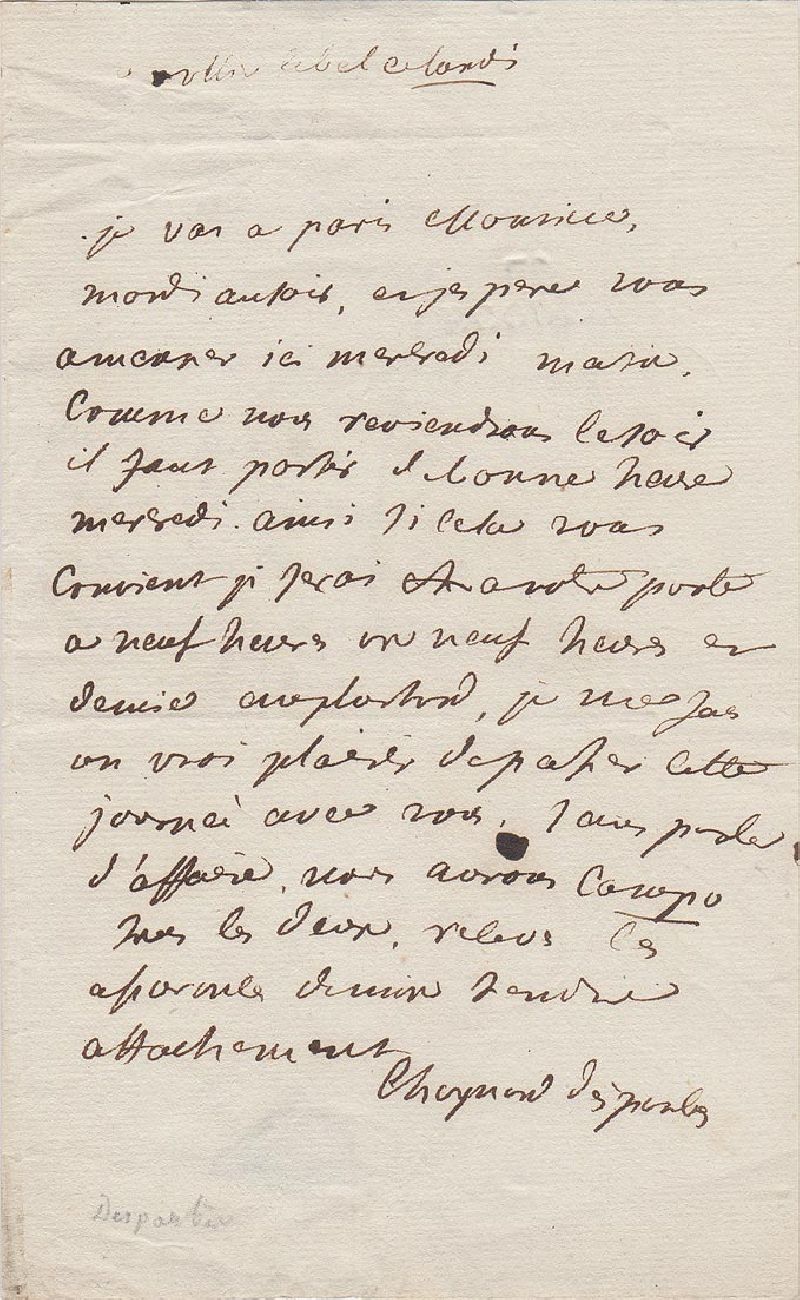 celundi
je vais a paris Monsieur,
mardi au soir, et jespere vous
amenner ici mercredi matin.
Comme nous reviendrons le soir
il faut partir de bonne heure
mercredi. ainsi si cela vous
Convient je serai a votre porte
a neuf heures ou neuf heures et
demie au plustard, je me fais
un vrai plaisir de passer cette
journeé avec vous, sans parler
d'affaire, nous aurons Campo
tous les deux. recevés les
assurances de mon tendre
attachement
Chaynard desportes
Desportes